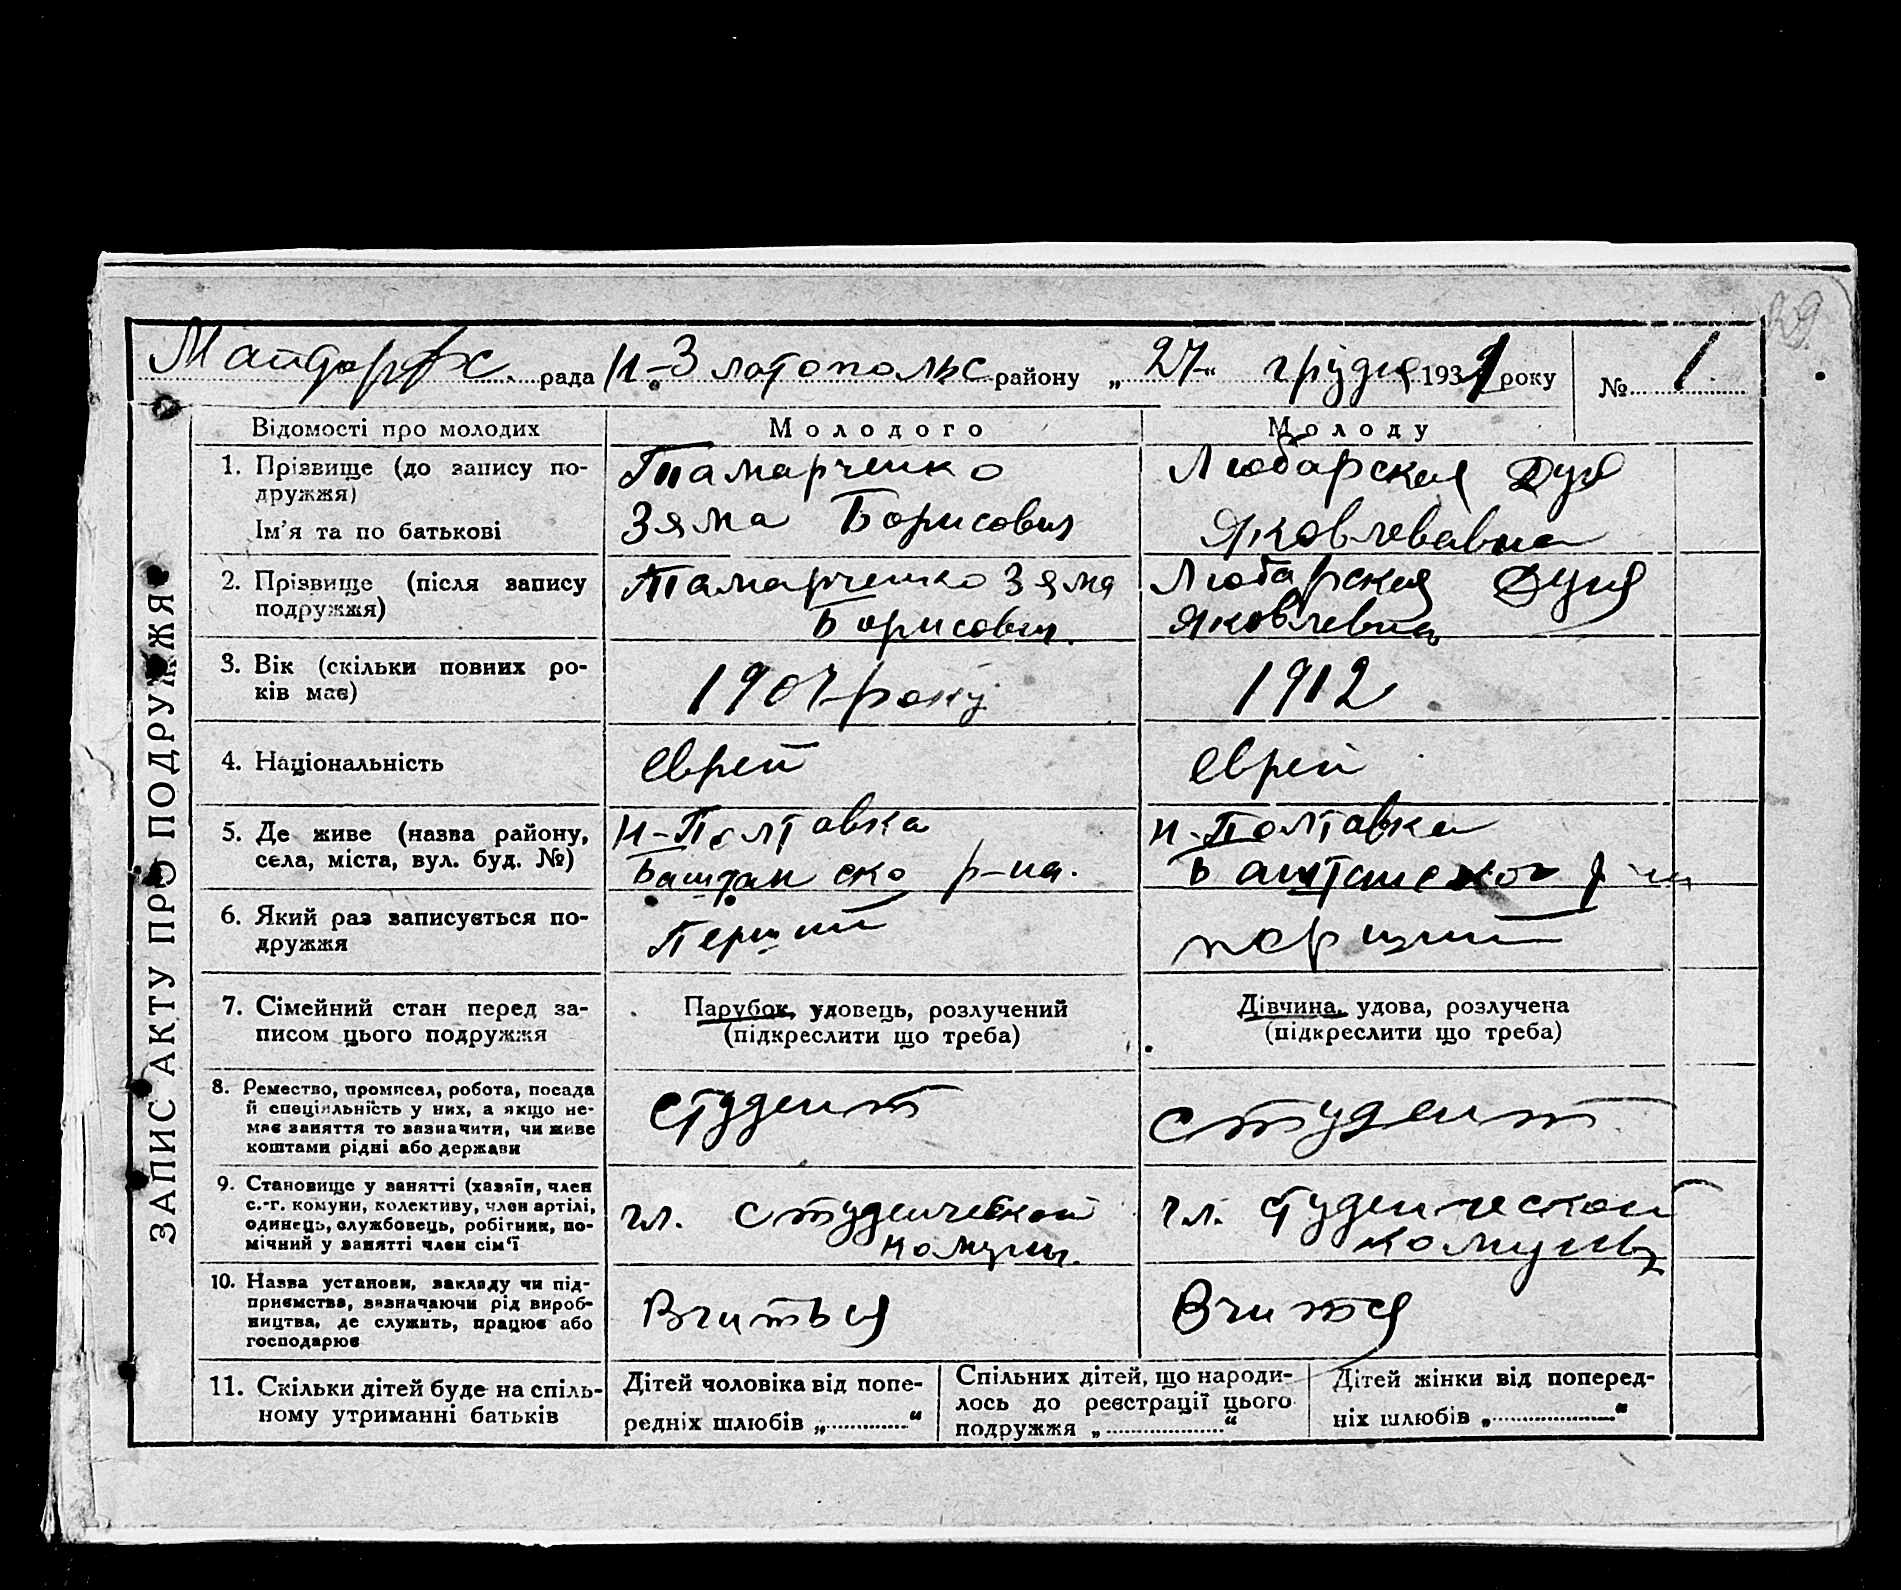 29
Майдорфск. рада Н.-Златопольс району „27“ грудня 1931 року № 1
ЗАПИС АКТУ ПРО ПОДРУЖЖЯ
Відомості про молодих Молодого Молоду
1. Прізвище (до запису по-
дружжя)
Ім’я та по батькові
Тамарченко
Зяма Борисович
Любарская Дуня
Яковлевавна
2. Прізвище (після запису
подружжя)
Тамарченко Зяма
Борисович.
Любарская Дуня
Яковлевна
3. Вік (скільки повних ро-
ків має)
1907 року
1912
4. Національність
еврей
еврей
5. Де живе (назва району,
села, міста, вул. буд. №)
Н-Полтавка
Баштанско р-на.
Н-Полтавка
Баштанског р-на
6. Який раз записується по-
дружжя
Перший
перший
7. Сімейний стан перед за-
писом цього подружжя
Парубок, удовець, розлучений
(підкреслити що треба)
Дівчина, удова, розлучена
(підкреслити що треба)
8. Ремество, промисел, робота, посада
й спеціяльність у них, а якщо не-
має заняття то зазначити, чи живе
коштами рідні або держави
студент
студент
9. Становище у занятті (хазяїн, член
с.-г. комуни, колективу, член артілі,
одинець, службовець, робітник, по-
мічний у занятті член сім‘ї
чл. студенческой
комуны.
чл. студенческой
комуны
10. Назва установи, закладу чи під-
приємства, зазначаючи рід вироб-
ництва, де служить, працює або
господарює
Вчиться
Вчится
11. Скільки дітей буде на спіль-
ному утриманні батьків
Дітей чоловіка від попе-
редніх шлюбів „..............“
Спільних дітей, що народи-
лось до реєстрації цього
подружжя „....................“
Дітей жінки від поперед-
ніх шлюбів „.....................“